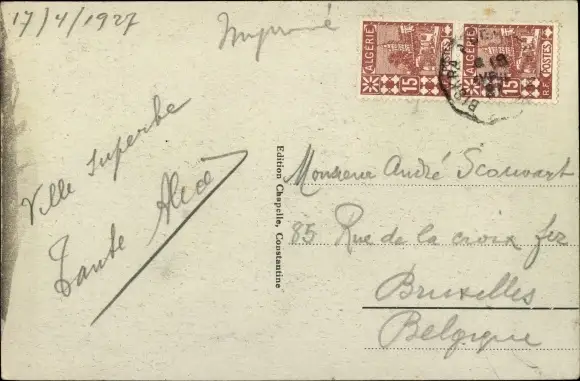 17/4/1927
Imprimé
ALGÉRIE
15
POSTES
R.F.
ALGÉRIE
15
POSTES
R.F.
BISKRA
Ville Superbe
Tante Alice
Edition Chapelle, Constantine
Monsieur André Scouvart
85 Rue de la croix fer
Bruxelles
Belgique